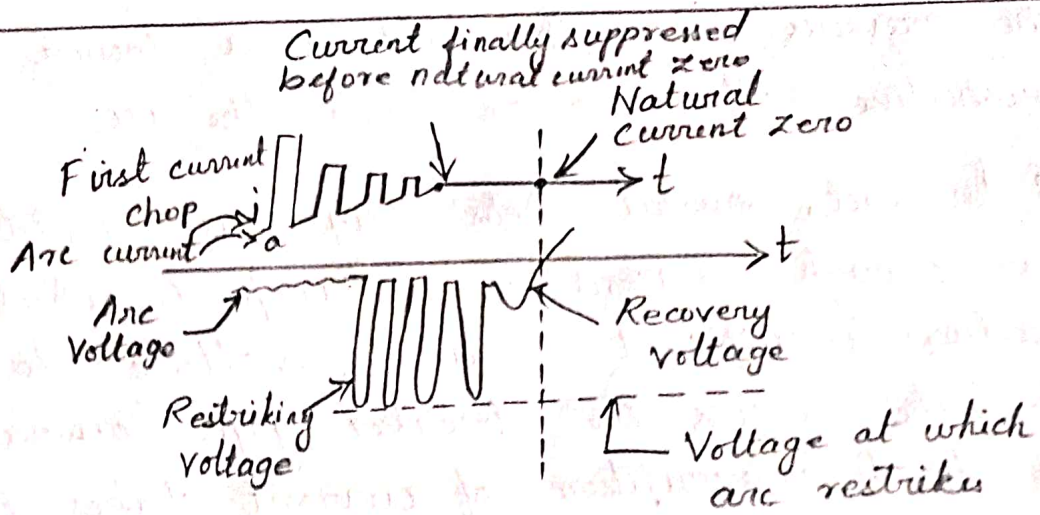 Current finally suppressed
before natural current zero
Natural
current zero
First current
chop
i
Arc current
a
t
t
Arc
Voltage
Recovery
voltage
Restriking
voltage
Voltage at which
arc restrikes